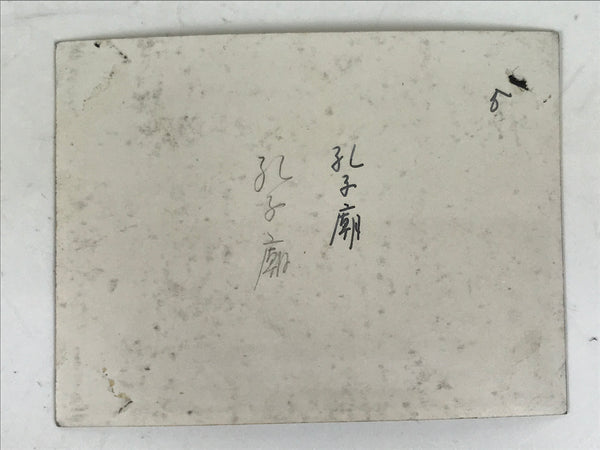 孔子廟
孔子廟